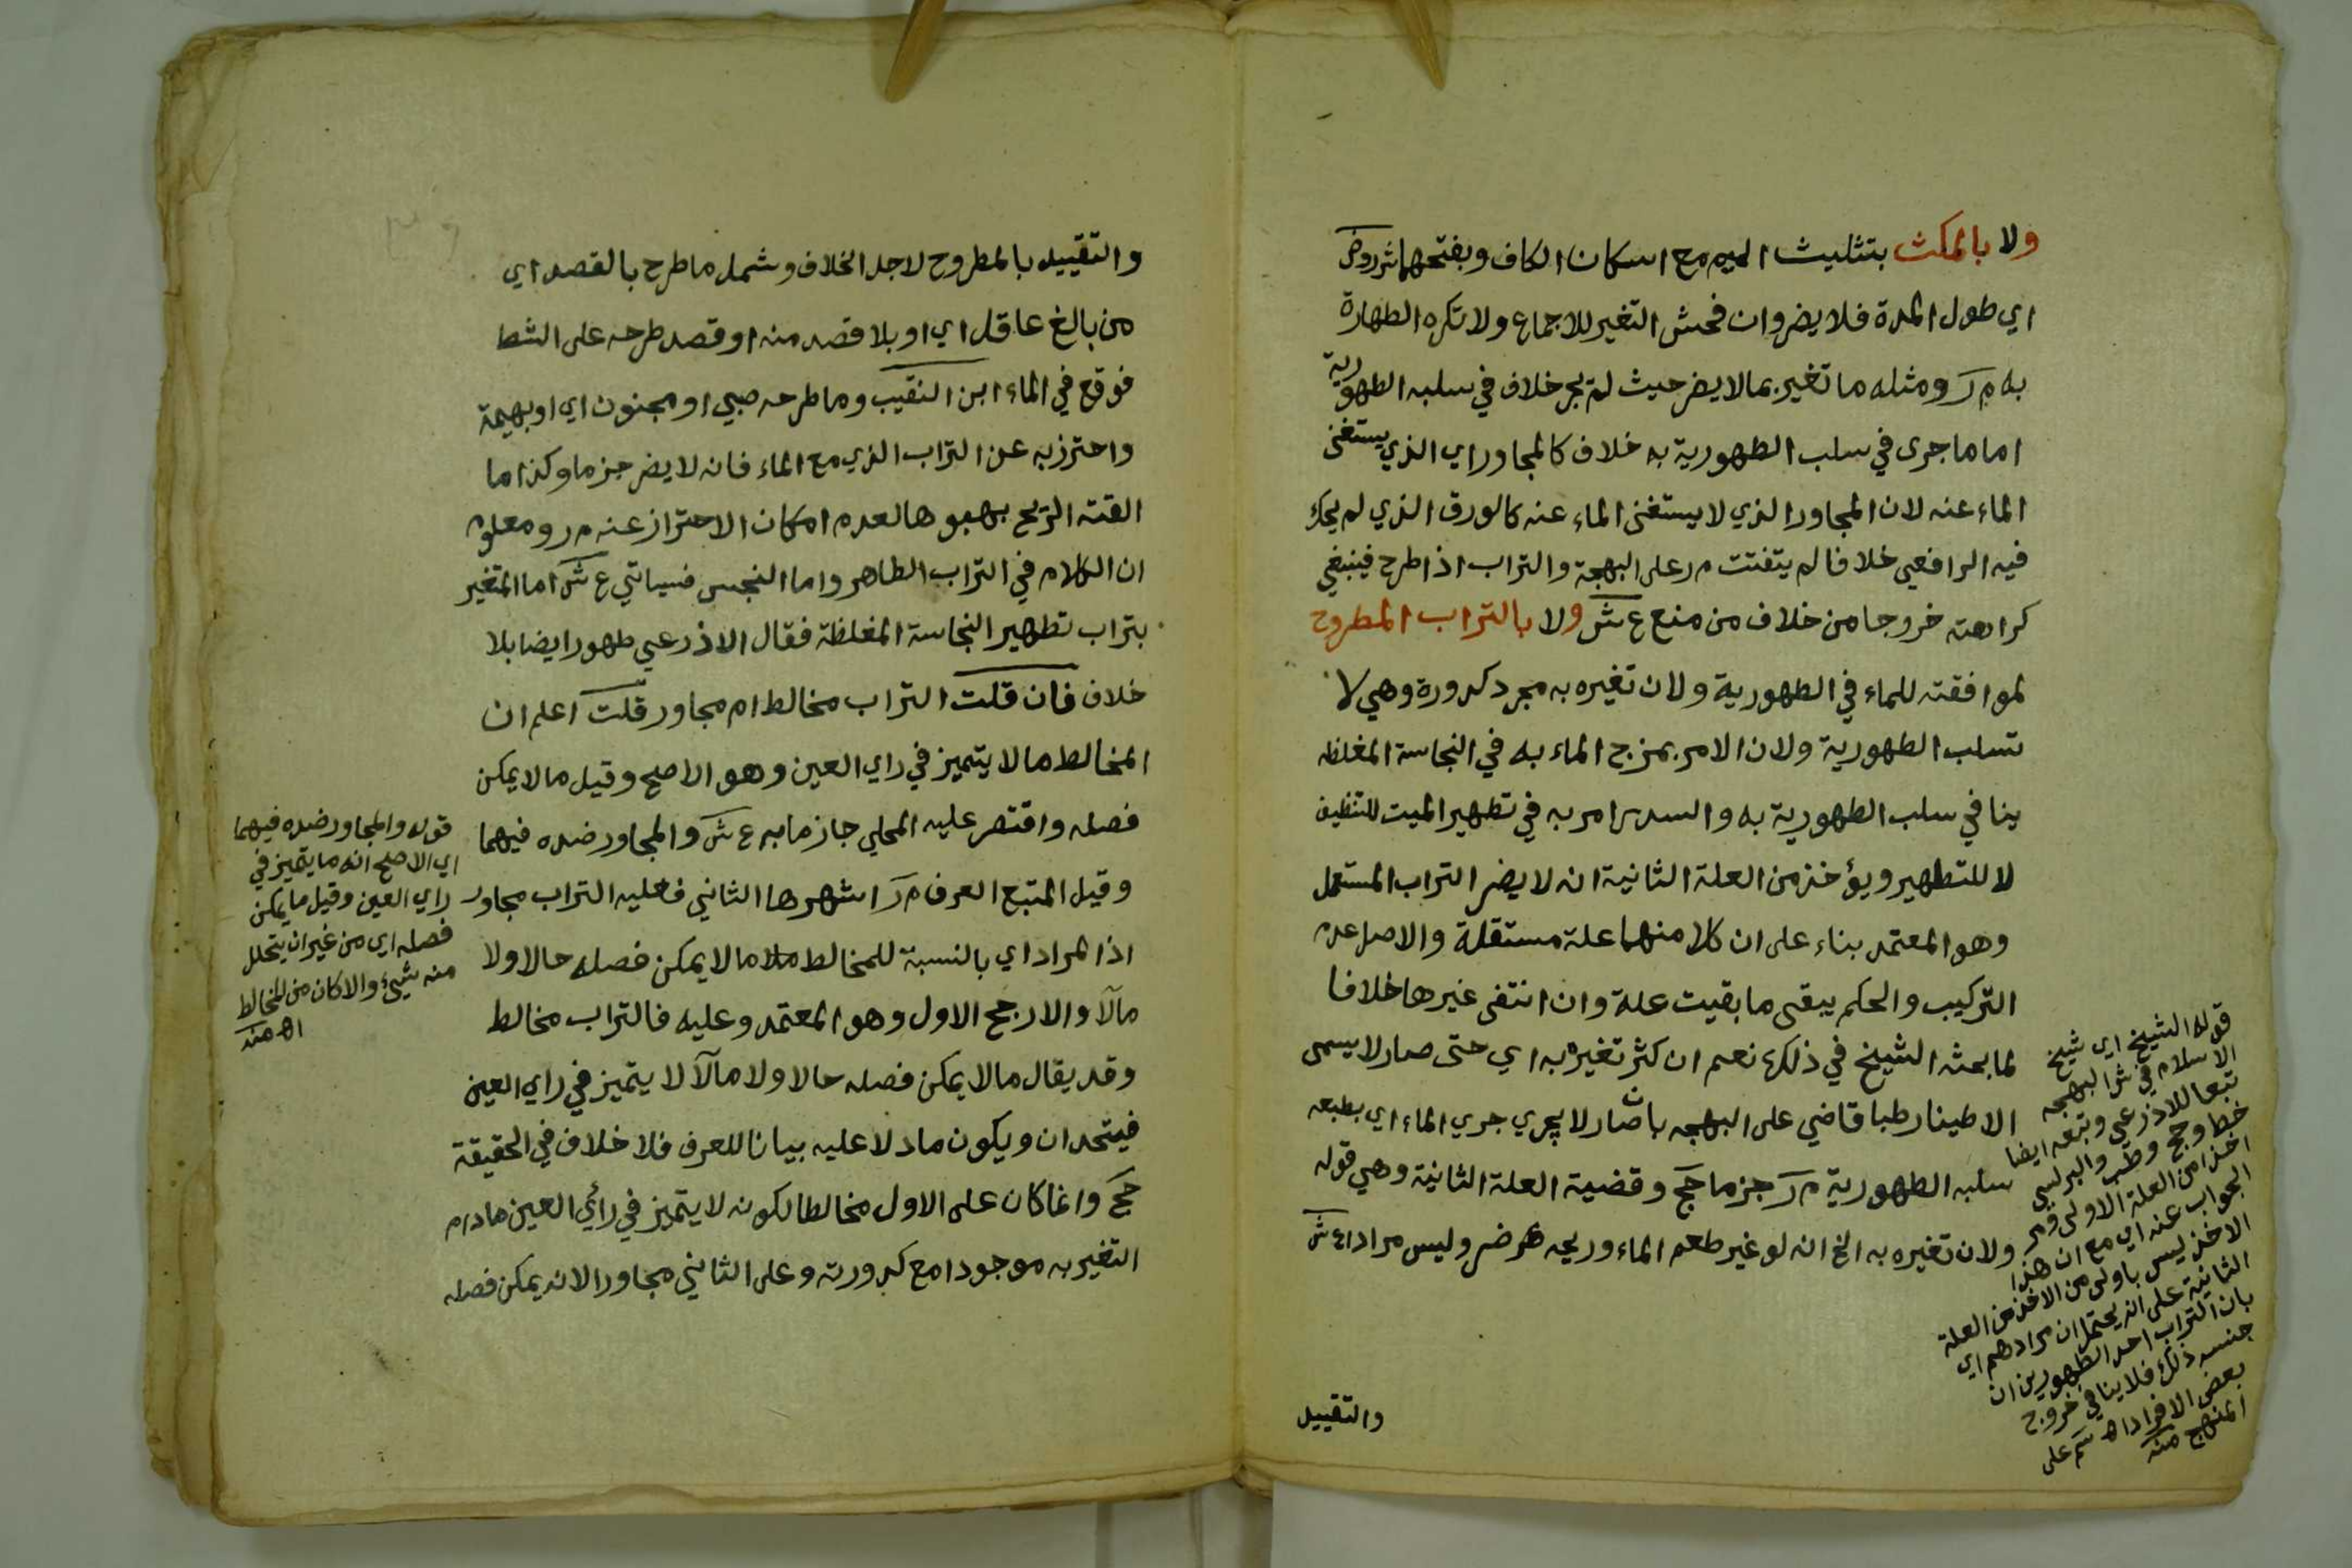 ولا بالمكث بتثليث الميم مع اسكان الكاف وبفتحهما شر روض
اي طول المدة فلا يضر وان فحش التغير للاجماع ولا تكره الطهارة
به م ر ومثله ما تغير بما لا يضر حيث لم يجر خلاف في سلبه الطهورية
اما ما جرى في سلب الطهورية به خلاف كالمجاور اي الذي يستغنى
الماء عنه لان المجاور الذي لا يستغنى الماء عنه كالورق الذي لم يحك
فيه الرافعي خلافا لم يتفتت م ر على البهجة والتراب اذا طرح فينبغي
كراهته خروجا من خلاف من منع ع ش ولا بالتراب المطروح
لموافقته للماء في الطهورية ولان تغيره به مجرد كدورة وهي لا
تسلب الطهورية ولان الامر بمزج الماء به في النجاسة المغلظه
ينافي سلب الطهورية به والسدر امر به في تطهير الميت للتنظيف
لا للتطهير ويؤخذ من العلة الثانية انه لا يضر التراب المستعمل
وهو المعتمد بناء على ان كلا منهما علة مستقلة والاصل عدم
التركيب والحكم يبقى ما بقيت علة وان انتفى غيرها خلافا
لما بحثه الشيخ في ذلك نعم ان كثر تغيره به اي حتى صار لا يسمى
الا طينا رطبا قاضي على البهجه بان صار لا يجري جري الماء اي بطبعه
سلبه الطهورية م ر جزما حج وقضية العلة الثانية وهي قوله
ولان تغيره به الخ انه لو غير طعم الماء وريحه ضر وليس مرادا ع ش
قوله الشيخ اي شيخ
الاسلام في شر البهجه
تبعا للاذرعي وتبعه ايضا
خط وحج وطب والبرلسي
اخذا من العلة الاولى ومر
الجواب عنه اي مع ان هذا
الاخذ ليس باولى من الاخذ من العلة
الثانية على انه يحتمل ان مرادهم اي
بان التراب احد الطهورين ان
جنسه ذلك فلا ينافي خروج
بعض الافراد اه سم على
المنهج منه
والتقييد
والتقييد بالمطروح لاجل الخلاف وشمل ما طرح بالقصد اي
من بالغ عاقل اي او بلا قصد منه او قصد طرحه على الشط
فوقع في الماء ابن النقيب وما طرحه صبي او مجنون اي او بهيمة
واحترز به عن التراب الذي مع الماء فانه لا يضر جزما وكذا ما
القته الريح بهبوبها لعدم امكان الاحتراز عنه م ر ومعلوم
ان الكلام في التراب الطاهر واما النجس فسياتي ع ش اما المتغير
بتراب تطهير النجاسة المغلظة فقال الاذرعي طهور ايضا بلا
خلاف فان قلت التراب مخالط ام مجاور قلت اعلم ان
المخالط ما لا يتميز في راي العين وهو الاصح وقيل ما لا يمكن
فصله واقتصر عليه المحلي جازما به ع ش والمجاور ضده فيهما
وقيل المتبع العرف م ر اشهرها الثاني فعليه التراب مجاور
اذ المراد اي بالنسبة للمخالط ما لا يمكن فصله حالا ولا
مآلا والارجح الاول وهو المعتمد وعليه فالتراب مخالط
وقد يقال ما لا يمكن فصله حالا ولا مآلا لا يتميز في راي العين
فيتحدان ويكون ما دلا عليه بيانا للعرف فلا خلاف في الحقيقة
حج وانما كان على الاول مخالطا لكونه لا يتميز في رأي العين مادام
التغير به موجودا مع كدورته وعلى الثاني مجاورا لانه يمكن فصله
قوله والمجاور ضده فيهما
اي الاصح انه ما يتميز في
راي العين وقيل ما يمكن
فصله اي من غير ان يتحلل
منه شيئ والا كان من المخالط
اه منه